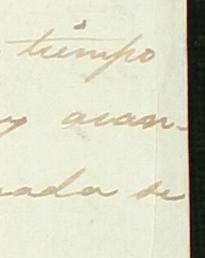 tiempo
y avan-
nada se